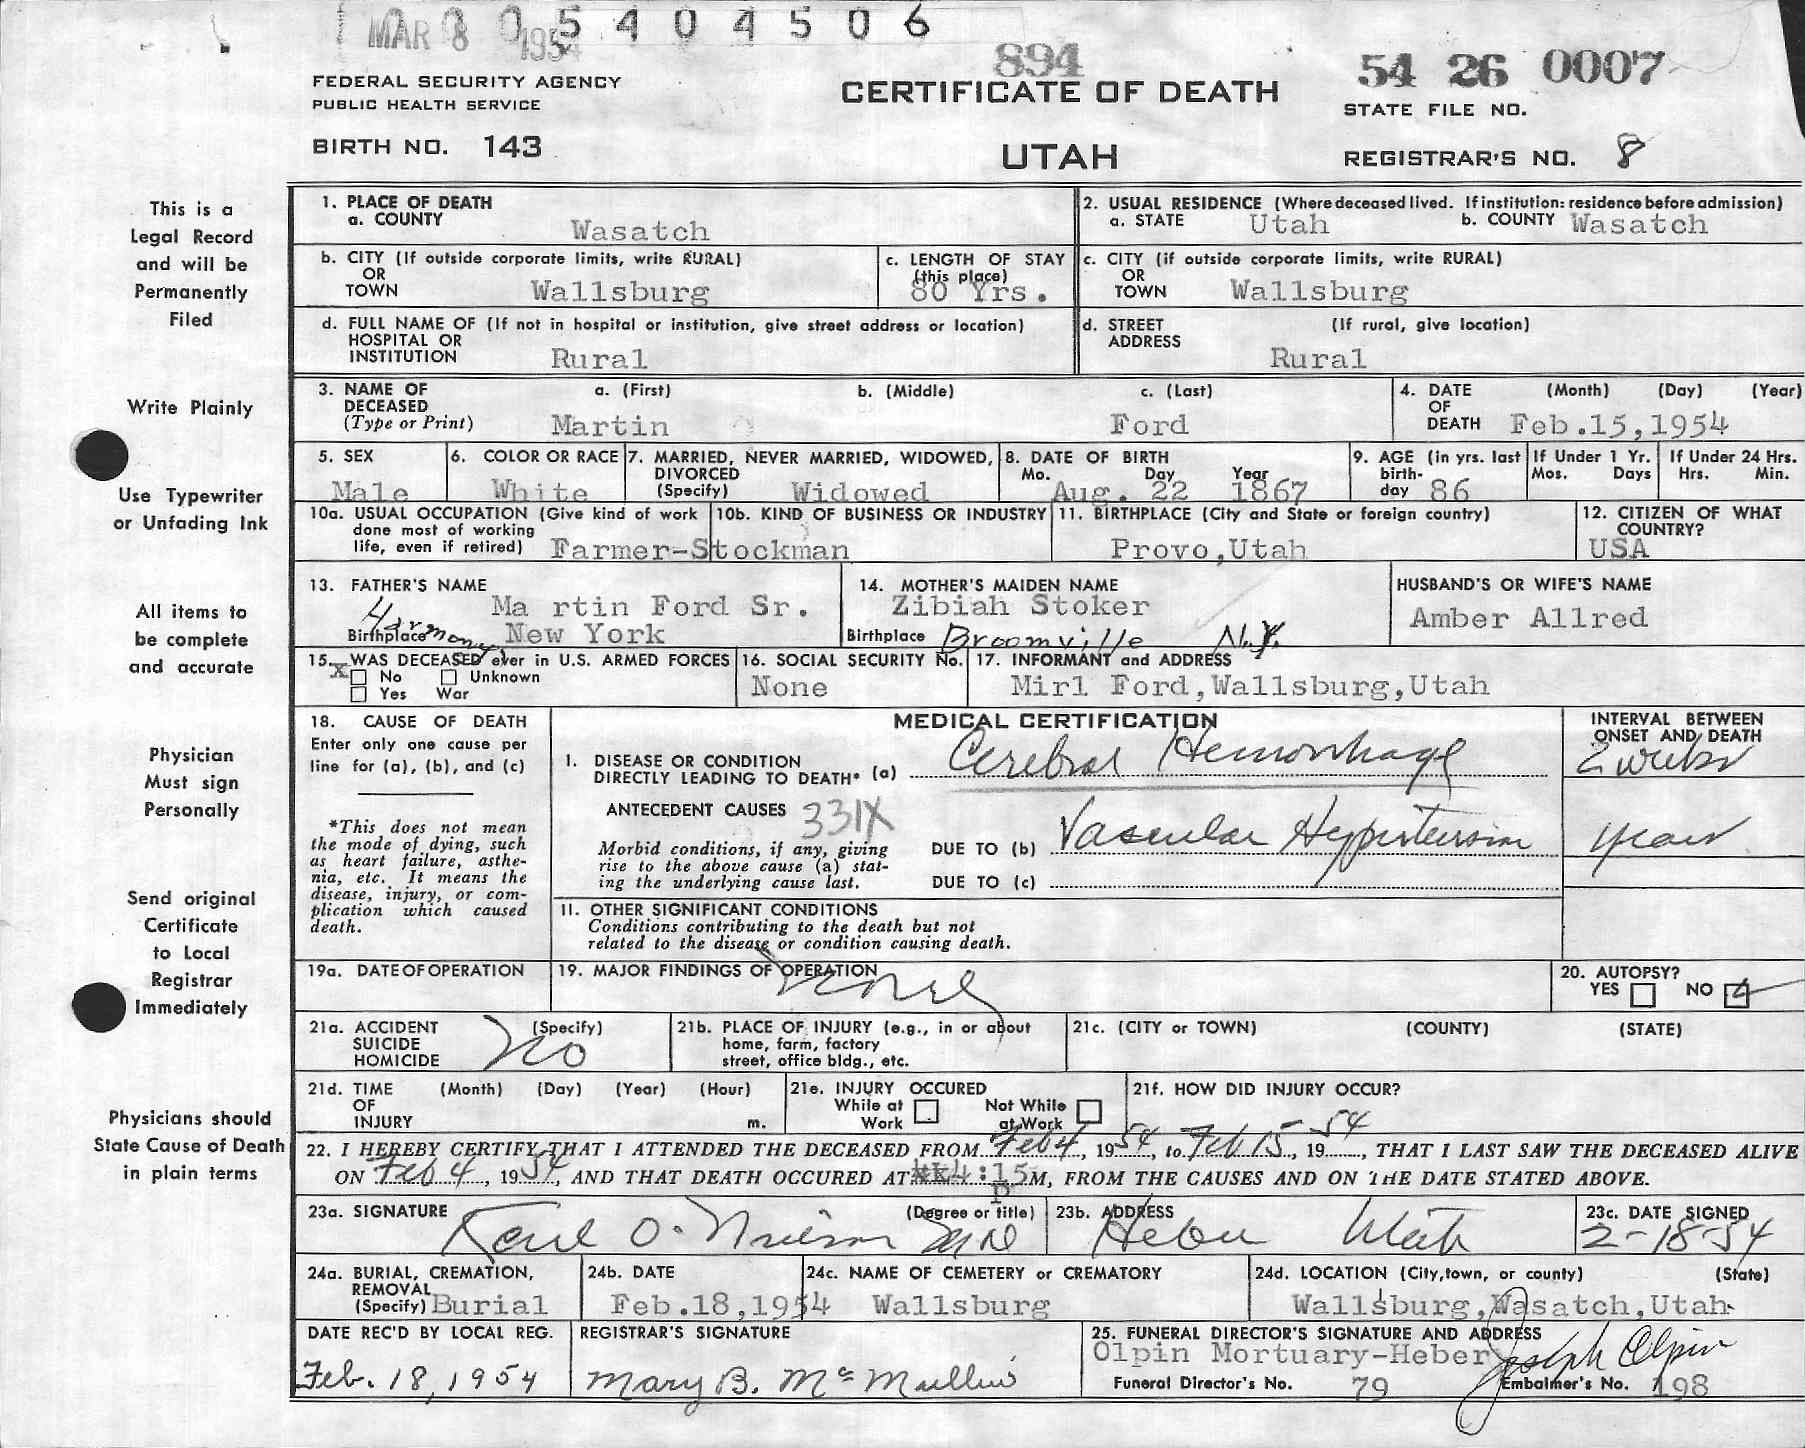 MAR 8 1954
0 5 4 0 4 5 0 6
894
54 26 0007
FEDERAL SECURITY AGENCY
PUBLIC HEALTH SERVICE
CERTIFICATE OF DEATH
STATE FILE NO.
BIRTH NO. 143
UTAH
REGISTRAR'S NO. 8
This is a
Legal Record
and will be
Permanently
Filed
Write Plainly
Use Typewriter
or Unfading Ink
All items to
be complete
and accurate
Physician
Must sign
Personally
Send original
Certificate
to Local
Registrar
Immediately
Physicians should
State Cause of Death
in plain terms
1. PLACE OF DEATH
a. COUNTY Wasatch
2. USUAL RESIDENCE (Where deceased lived. If institution: residence before admission)
a. STATE Utah b. COUNTY Wasatch
b. CITY (If outside corporate limits, write RURAL)
OR
TOWN Wallsburg
c. LENGTH OF STAY
(this place)
80 Yrs.
c. CITY (if outside corporate limits, write RURAL)
OR
TOWN Wallsburg
d. FULL NAME OF (If not in hospital or institution, give street address or location)
HOSPITAL OR
INSTITUTION Rural
d. STREET (If rural, give location)
ADDRESS Rural
3. NAME OF a. (First) b. (Middle) c. (Last)
DECEASED
(Type or Print) Martin Ford
4. DATE (Month) (Day) (Year)
OF
DEATH Feb.15,1954
5. SEX
Male
6. COLOR OR RACE
White
7. MARRIED, NEVER MARRIED, WIDOWED,
DIVORCED
(Specify) Widowed
8. DATE OF BIRTH
Mo. Day Year
Aug. 22 1867
9. AGE (in yrs. last
birth-
day 86
If Under 1 Yr.
Mos. Days
If Under 24 Hrs.
Hrs. Min.
10a. USUAL OCCUPATION (Give kind of work
done most of working
life, even if retired) Farmer-Stockman
10b. KIND OF BUSINESS OR INDUSTRY
11. BIRTHPLACE (City and State or foreign country)
Provo,Utah
12. CITIZEN OF WHAT
COUNTRY?
USA
13. FATHER'S NAME
Ma rtin Ford Sr.
Birthplace Harmony New York
14. MOTHER'S MAIDEN NAME
Zibiah Stoker
Birthplace Broomville N.Y.
HUSBAND'S OR WIFE'S NAME
Amber Allred
15. WAS DECEASED ever in U.S. ARMED FORCES
X No Unknown
Yes War
16. SOCIAL SECURITY No.
None
17. INFORMANT and ADDRESS
Mirl Ford,Wallsburg,Utah
18. CAUSE OF DEATH
Enter only one cause per
line for (a), (b), and (c)
*This does not mean
the mode of dying, such
as heart failure, asthe-
nia, etc. It means the
disease, injury, or com-
plication which caused
death.
MEDICAL CERTIFICATION
INTERVAL BETWEEN
ONSET AND DEATH
I. DISEASE OR CONDITION
DIRECTLY LEADING TO DEATH* (a) Cerebral Hemorrhage 2 weeks
ANTECEDENT CAUSES 331X
Morbid conditions, if any, giving
rise to the above cause (a) stat-
ing the underlying cause last.
DUE TO (b) Vascular Hypertension years
DUE TO (c)
II. OTHER SIGNIFICANT CONDITIONS
Conditions contributing to the death but not
related to the disease or condition causing death.
19a. DATE OF OPERATION
19. MAJOR FINDINGS OF OPERATION
None
20. AUTOPSY?
YES NO
21a. ACCIDENT (Specify)
SUICIDE
HOMICIDE No
21b. PLACE OF INJURY (e.g., in or about
home, farm, factory
street, office bldg., etc.
21c. (CITY or TOWN) (COUNTY) (STATE)
21d. TIME (Month) (Day) (Year) (Hour)
OF
INJURY m.
21e. INJURY OCCURED
While at Not While
Work at Work
21f. HOW DID INJURY OCCUR?
22. I HEREBY CERTIFY THAT I ATTENDED THE DECEASED FROM Feb 4, 1954, to Feb 15, 19 54, THAT I LAST SAW THE DECEASED ALIVE
ON Feb 4, 1954, AND THAT DEATH OCCURED AT 4:15 P M, FROM THE CAUSES AND ON THE DATE STATED ABOVE.
23a. SIGNATURE (Degree or title)
Karl O. Nielson MD
23b. ADDRESS
Heber Utah
23c. DATE SIGNED
2-18-54
24a. BURIAL, CREMATION,
REMOVAL
(Specify) Burial
24b. DATE
Feb.18,1954
24c. NAME OF CEMETERY or CREMATORY
Wallsburg
24d. LOCATION (City,town, or county) (State)
Wallsburg,Wasatch,Utah
DATE REC'D BY LOCAL REG.
Feb. 18, 1954
REGISTRAR'S SIGNATURE
Mary B. McMullin
25. FUNERAL DIRECTOR'S SIGNATURE AND ADDRESS
Olpin Mortuary-Heber Joseph Olpin
Funeral Director's No. 79 Embalmer's No. 198